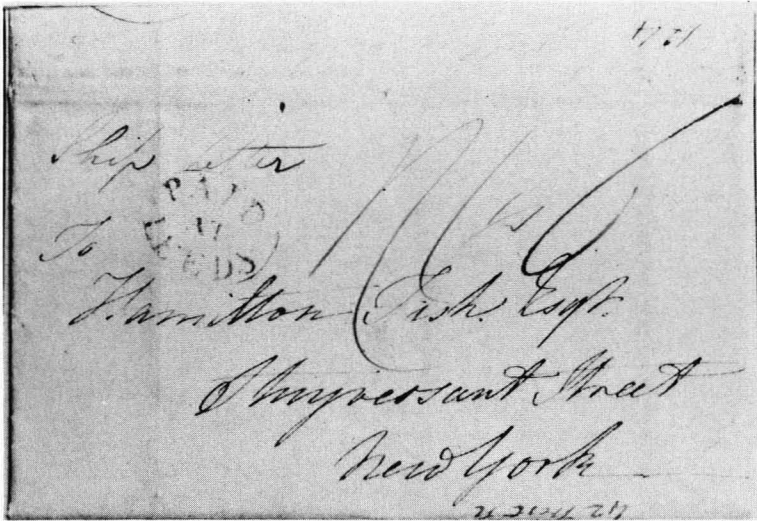 Ship Letter
PAID
AT
LEEDS
To
Hamilton Fish Esqr.
Stuyvessant Street
New York